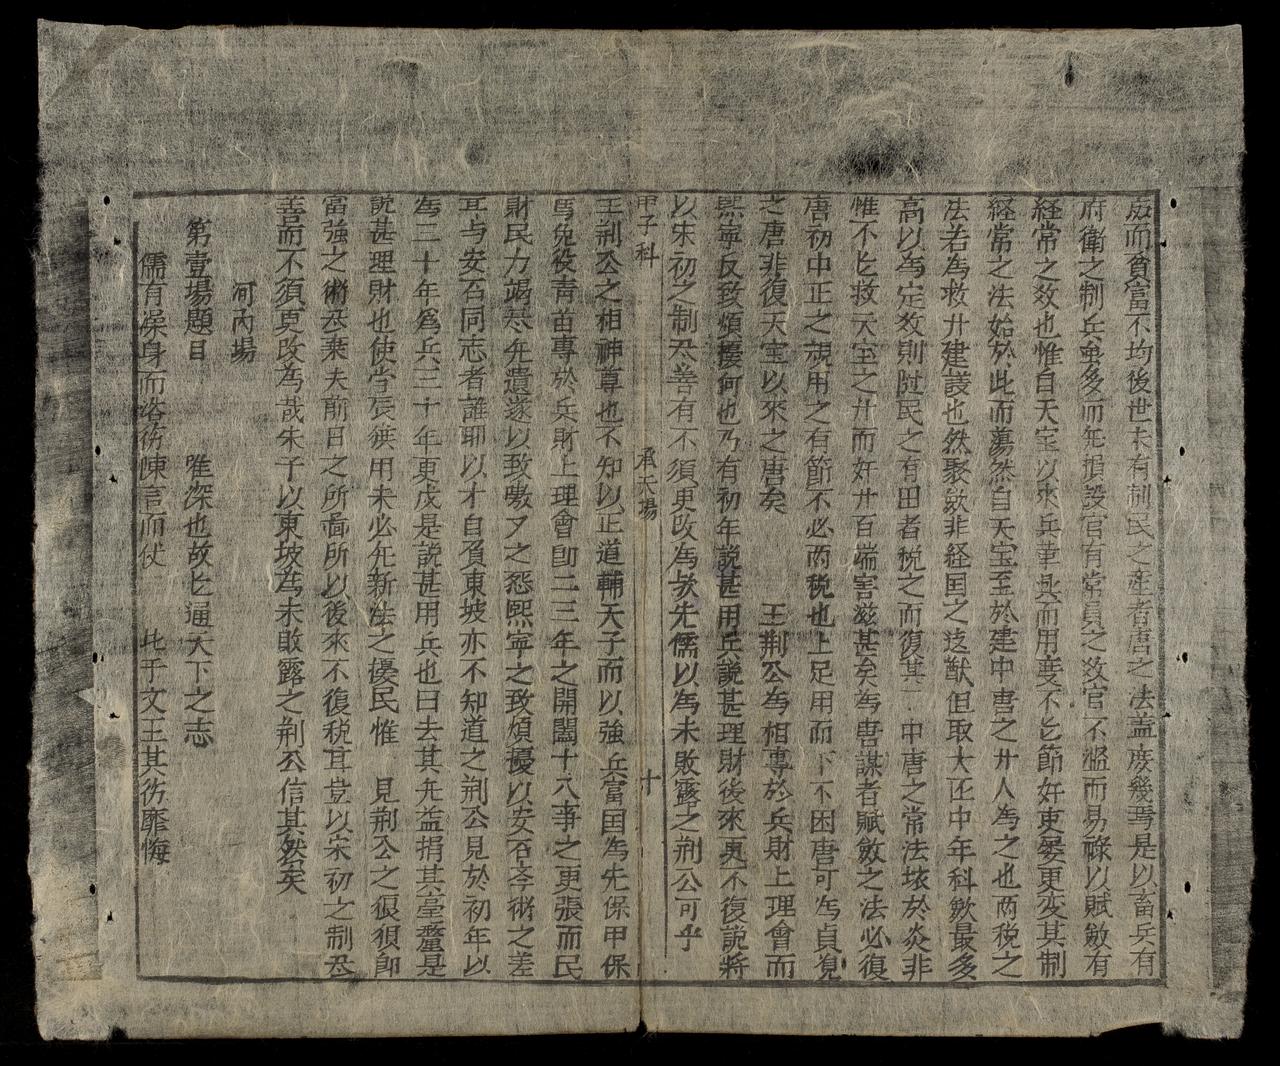 而貧富不均後世未有制民之産者唐之法盖庶幾焉是以畜兵有
府衛之制兵虽多而無損設官有常員之数官不濫而易祿以賦斂有
経常之效也惟自天宝以來兵革起而用度不能節奸吏屡更変其制
経常之法始於此而蕩然自天宝至於建中唐之世人為之也兩税之
法若為救世建議也然聚斂非経国之逺猷但取大历中年科歛最多
高以為定数則民之有田者税之而復其 中唐之常法於炎非
惟不能救天宝之世而奸世百端害滋甚矣為唐謀者賦斂之法必復
唐初中正之規用之有節不必兩税也上足用而下不困唐可為貞
之唐非復天宝以來之唐矣 王荆公為相專於兵財上理會而
熙寧反致煩擾何也乃有初年説甚用兵説甚理財後來更不復説將
以宋初之制尽善有不須更改為欤先儒以為未敗露之荆公可乎
甲子科 承天場 十
王荆公之相神尊也不知以正道輔天子而以強兵富国為先保甲保
馬免役青苗專於兵財上理會即二三年之開闔十八事之更張而民
財民力竭尽無遺遂以致嗷又之怨熙寧之致煩擾以安石李術之差
宜与安石同志者誰耶以才自負東坡亦不知道之荆公見於初年以
為三十年為兵三十年更戍是説甚用兵也曰去其無益捐其毫釐是
説甚理財也使当辰獲用未必無新法之擾民惟 見荆公之狼狽即
富強之術尽棄夫前日之所啚所以後來不復税耳豈以宋初之制尽
善而不須更改為哉朱子以東坡為未敗露之荆公信其然矣
河內場
第壹場題目 唯深也故能通天下之志
儒有澡身而浴徳陳言而伏 比于文王其徳靡悔